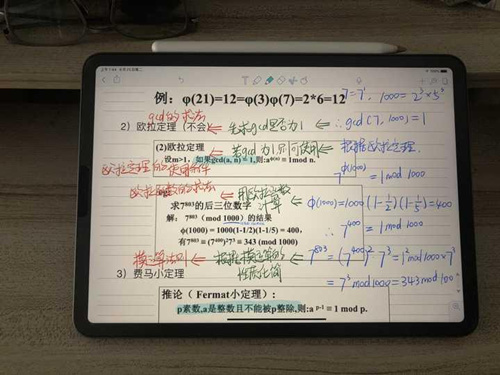 例：φ(21)=12=φ(3)φ(7)=2*6=12
7=7¹, 1000=2³×5³
gcd的求法
2）欧拉定理（不会）
先求gcd是否为1
∴gcd(7,1000)=1
(2)欧拉定理
若gcd为1,则可使用
根据欧拉定理.
设m>1, 如果gcd(a, n) = 1,则:a^φ(n) ≡ 1mod n.
欧拉定理的使用条件
7^φ(1000) ≡ 1mod 1000
欧拉函数的求法
用欧拉函数
计算
求7^803的后三位数字
φ(1000)=1000(1-1/2)(1-1/5)=400
解： 7^803（mod 1000）的结果
φ(1000) = 1000(1-1/2)(1-1/5) = 400，
∴ 7^400 ≡ 1mod 1000
有7^803 ≡ (7^400)²7³ ≡ 343 (mod 1000)
模运算法则
根据模运算的
性质化简
7^803 = (7^400)²·7³ = 1² mod 1000×7³
= 7³ mod 1000 = 343 mod 100
3）费马小定理
推论（ Fermat小定理）：
p素数,a是整数且不能被p整除,则:a^p-1 ≡ 1 mod p.